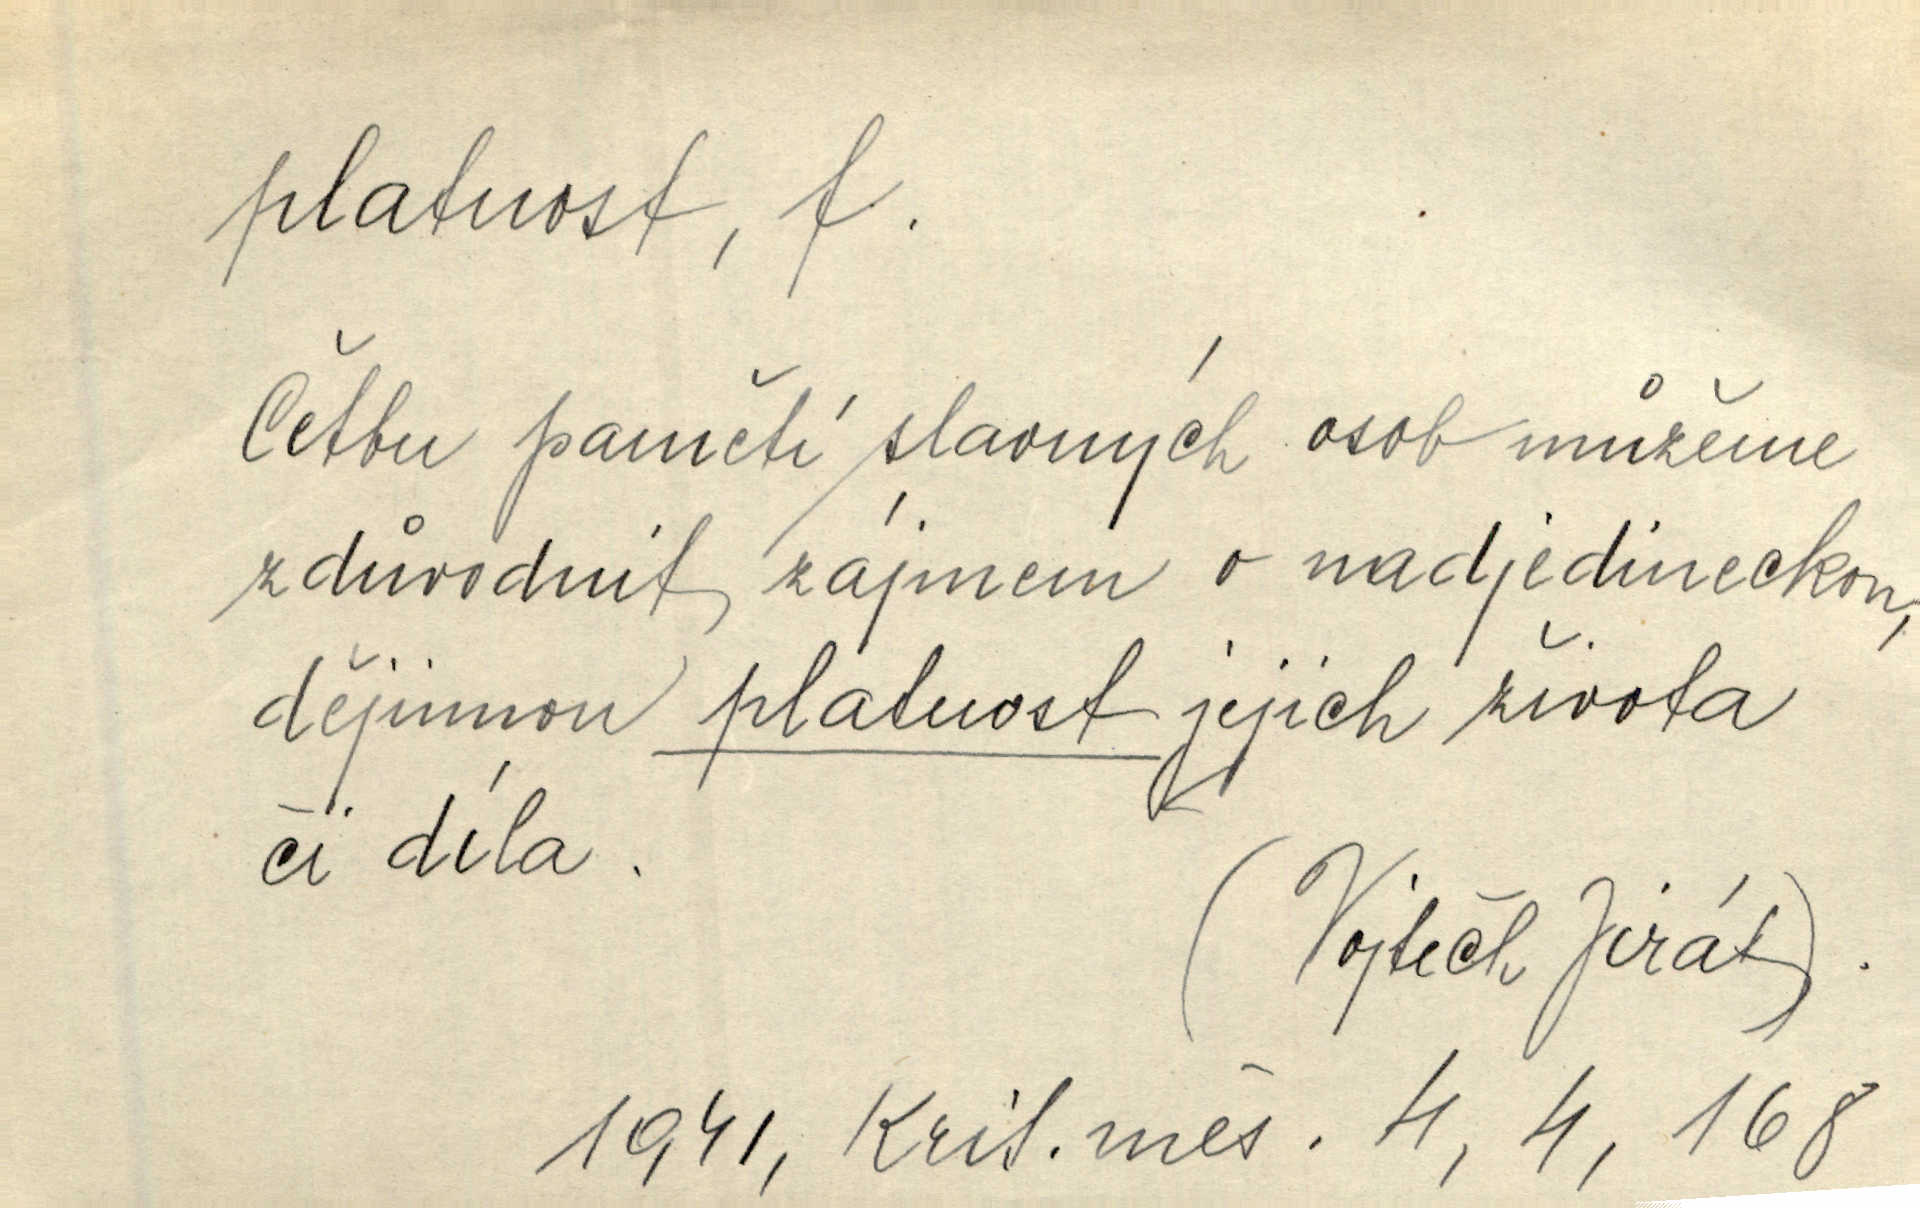 platnost, f.
Četbu pamětí slavných osob můžeme
zdůvodnit zájmem o nadjedineckou,
dějinnou platnost jejich života
či díla.
(Vojtěch Jirát).
1941, Krit. měs. 4, 4, 168